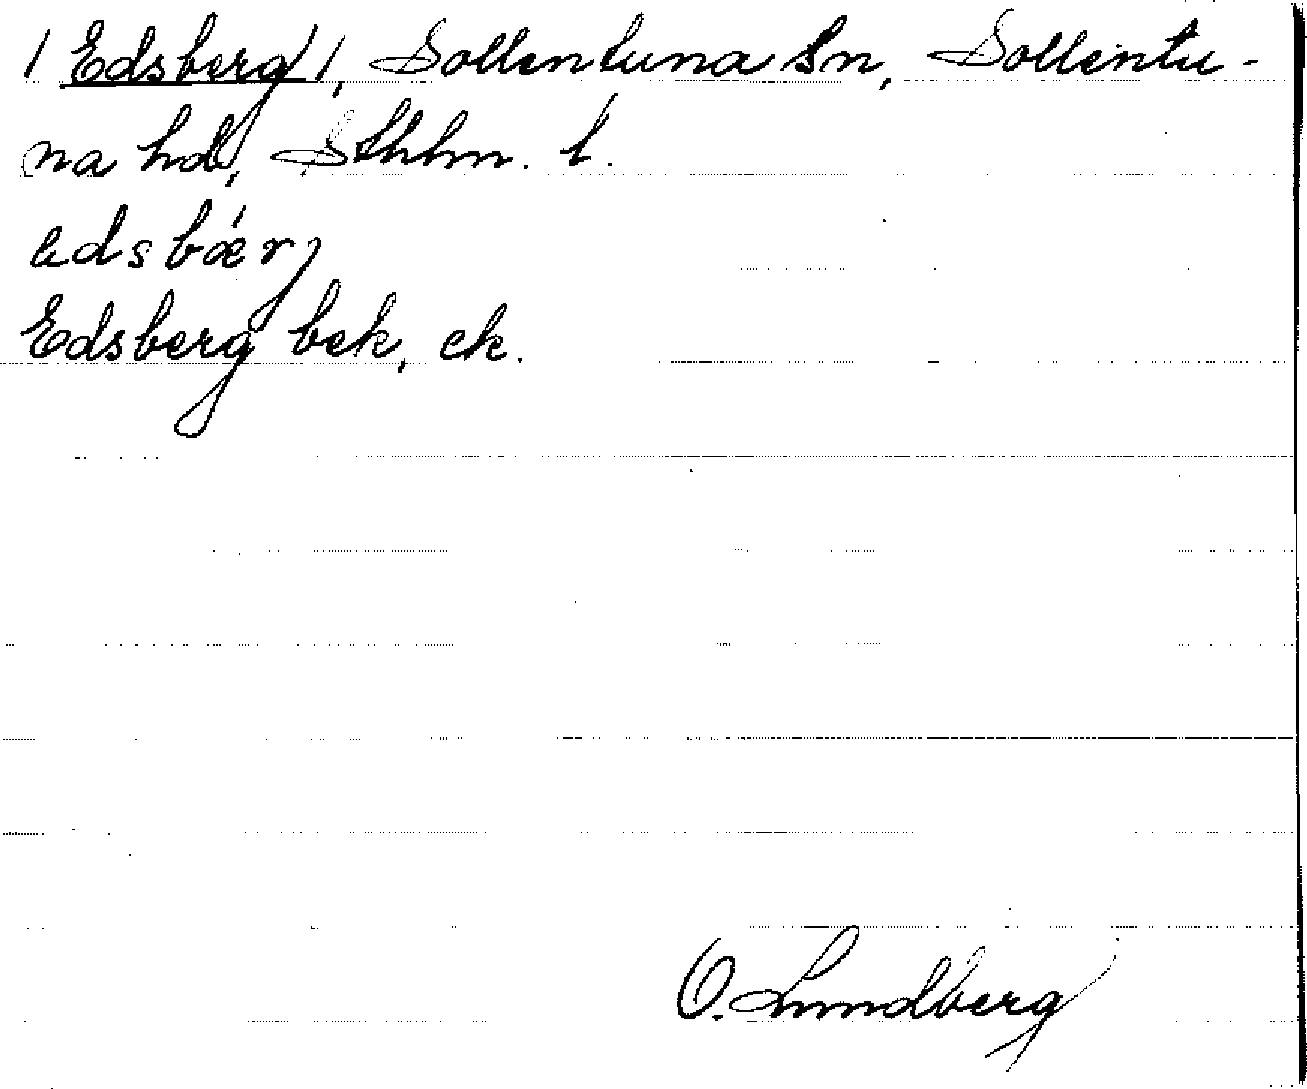 / Edsberg /, Sollentuna sn, Sollentu-
na hd, Sthlm. l.
edsbǽrj
Edsberg bek, ek.
O. Lundberg